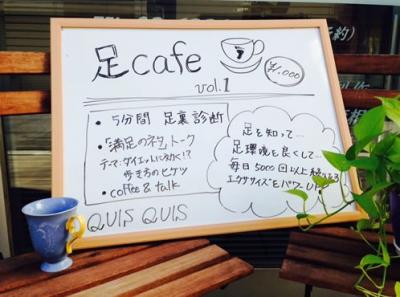 足cafe
vol.1
¥1,000
・5分間 足裏診断
・「満足のネタ」トーク
テーマ:ダイエットに効く!?
歩き方のヒケツ
・coffee & talk
足を知って…
足環境を良くして…
毎日5000回以上
エクササイズをパワーUP
QUIS QUIS
約)